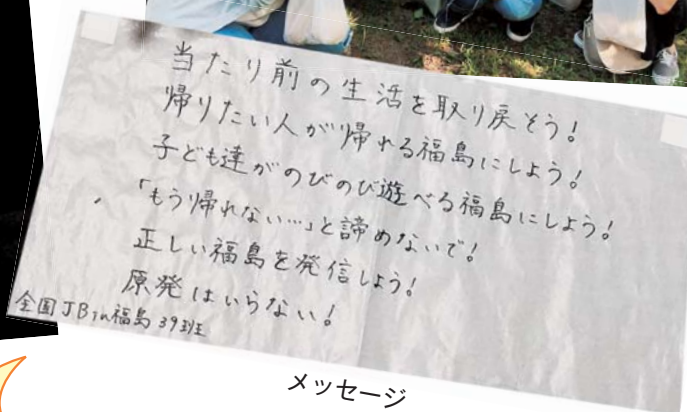 当たり前の生活を取り戻そう!
帰りたい人が帰れる福島にしよう!
子ども達がのびのび遊べる福島にしよう!
「もう帰れない…」と諦めないで!
正しい福島を発信しよう!
原発はいらない!
全国JBin福島 39班
メッセージ